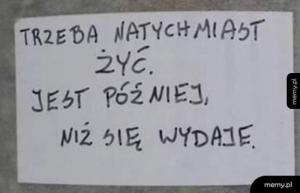 TRZEBA NATYCHMIAST
ŻYĆ.
JEST PÓŹNIEJ,
NIŻ SIĘ WYDAJE.
memy.pl
memy.pl